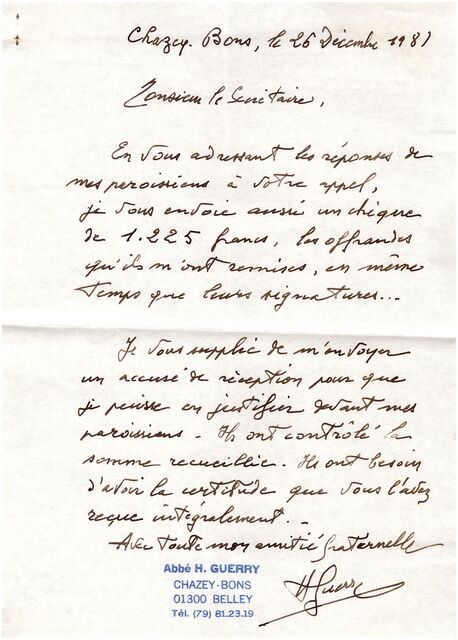 Chazey-Bons, le 26 Décembre 1981
Monsieur le Secrétaire,
En vous adressant les réponses de
mes paroissiens à votre appel,
je vous envoie aussi un chèque
de 1.225 francs, les offrandes
qu'ils m'ont remises, en même
temps que leurs signatures...
Je vous supplie de m'envoyer
un accusé de réception pour que
je puisse en justifier devant mes
paroissiens - Ils ont contrôlé la
somme recueillie. Ils ont besoin
d'avoir la certitude que vous l'avez
reçue intégralement. -
Avec toute mon amitié fraternelle
Abbé H. GUERRY
CHAZEY-BONS
01300 BELLEY
Tél. (79) 81.23.19
H Guerry